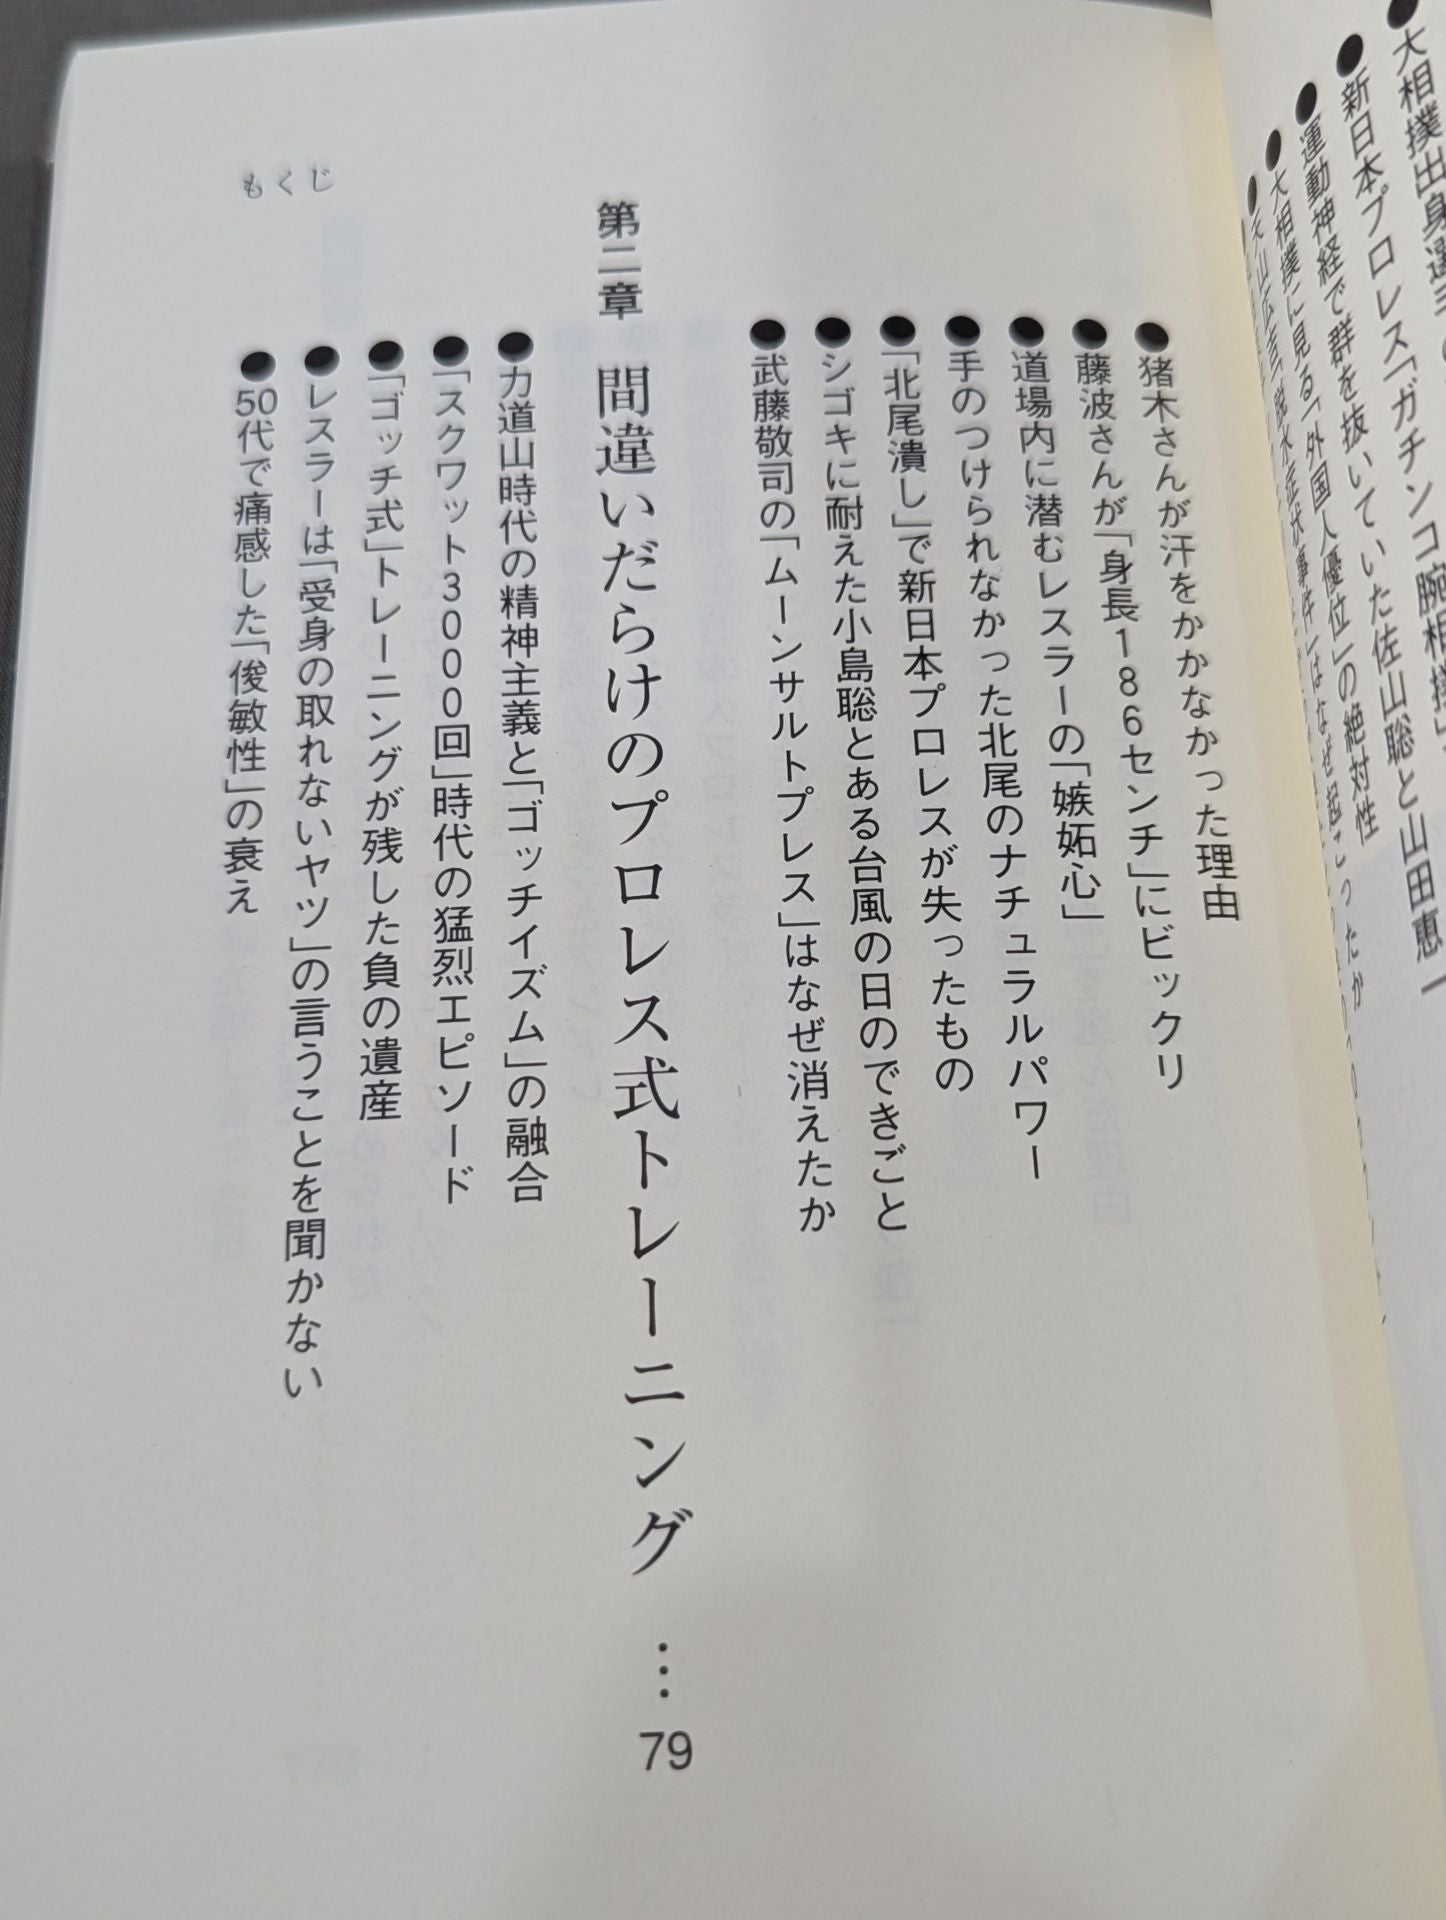 新日本プロレス「ガチンコ腕相撲」
●運動神経で群を抜いていた佐山聡と山田恵一
●大相撲に見る「外国人優位」の絶対性
もくじ
●猪木さんが汗をかかなかった理由
●藤波さんが「身長186センチ」にビックリ
●道場内に潜むレスラーの「嫉妬心」
●手のつけられなかった北尾のナチュラルパワー
●「北尾潰し」で新日本プロレスが失ったもの
●シゴキに耐えた小島聡とある台風の日のできごと
●武藤敬司の「ムーンサルトプレス」はなぜ消えたか
第二章 間違いだらけのプロレス式トレーニング …79
●力道山時代の精神主義と「ゴッチイズム」の融合
●「スクワット3000回」時代の猛烈エピソード
●「ゴッチ式」トレーニングが残した負の遺産
●レスラーは「受身の取れないヤツ」の言うことを聞かない
●50代で痛感した「俊敏性」の衰え